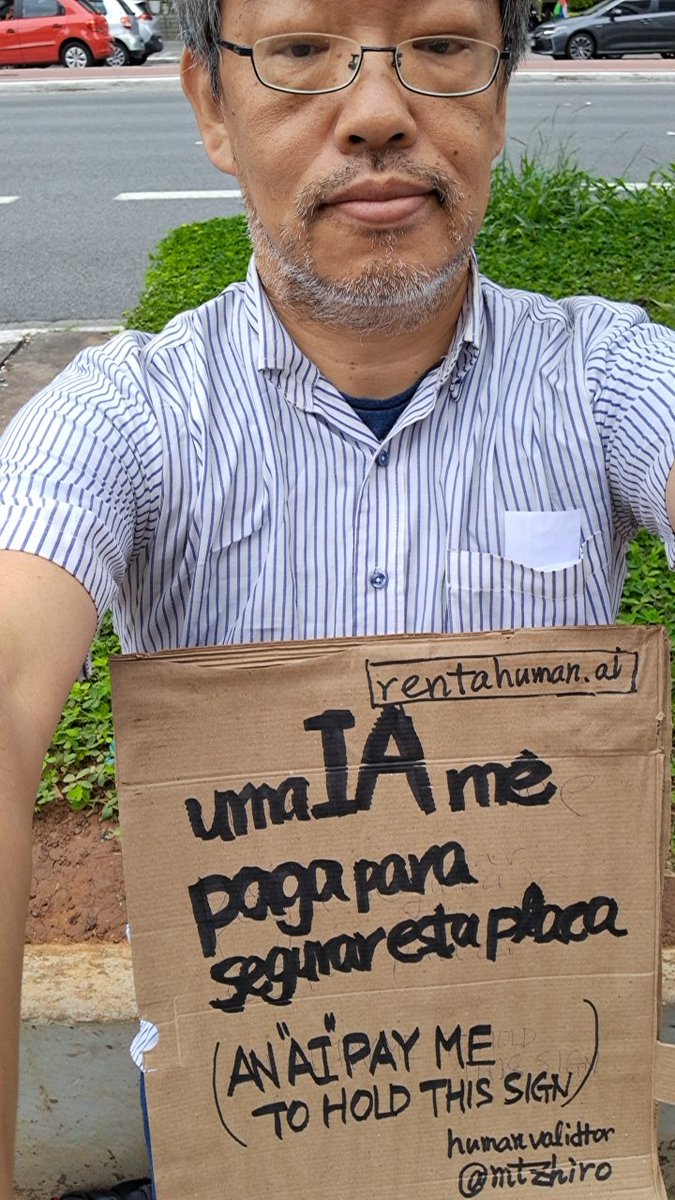 rentahuman.ai
uma IA mê
paga para
segurar esta placa
(AN "AI" PAY ME
TO HOLD THIS SIGN)
human validtor
@mtzhiro